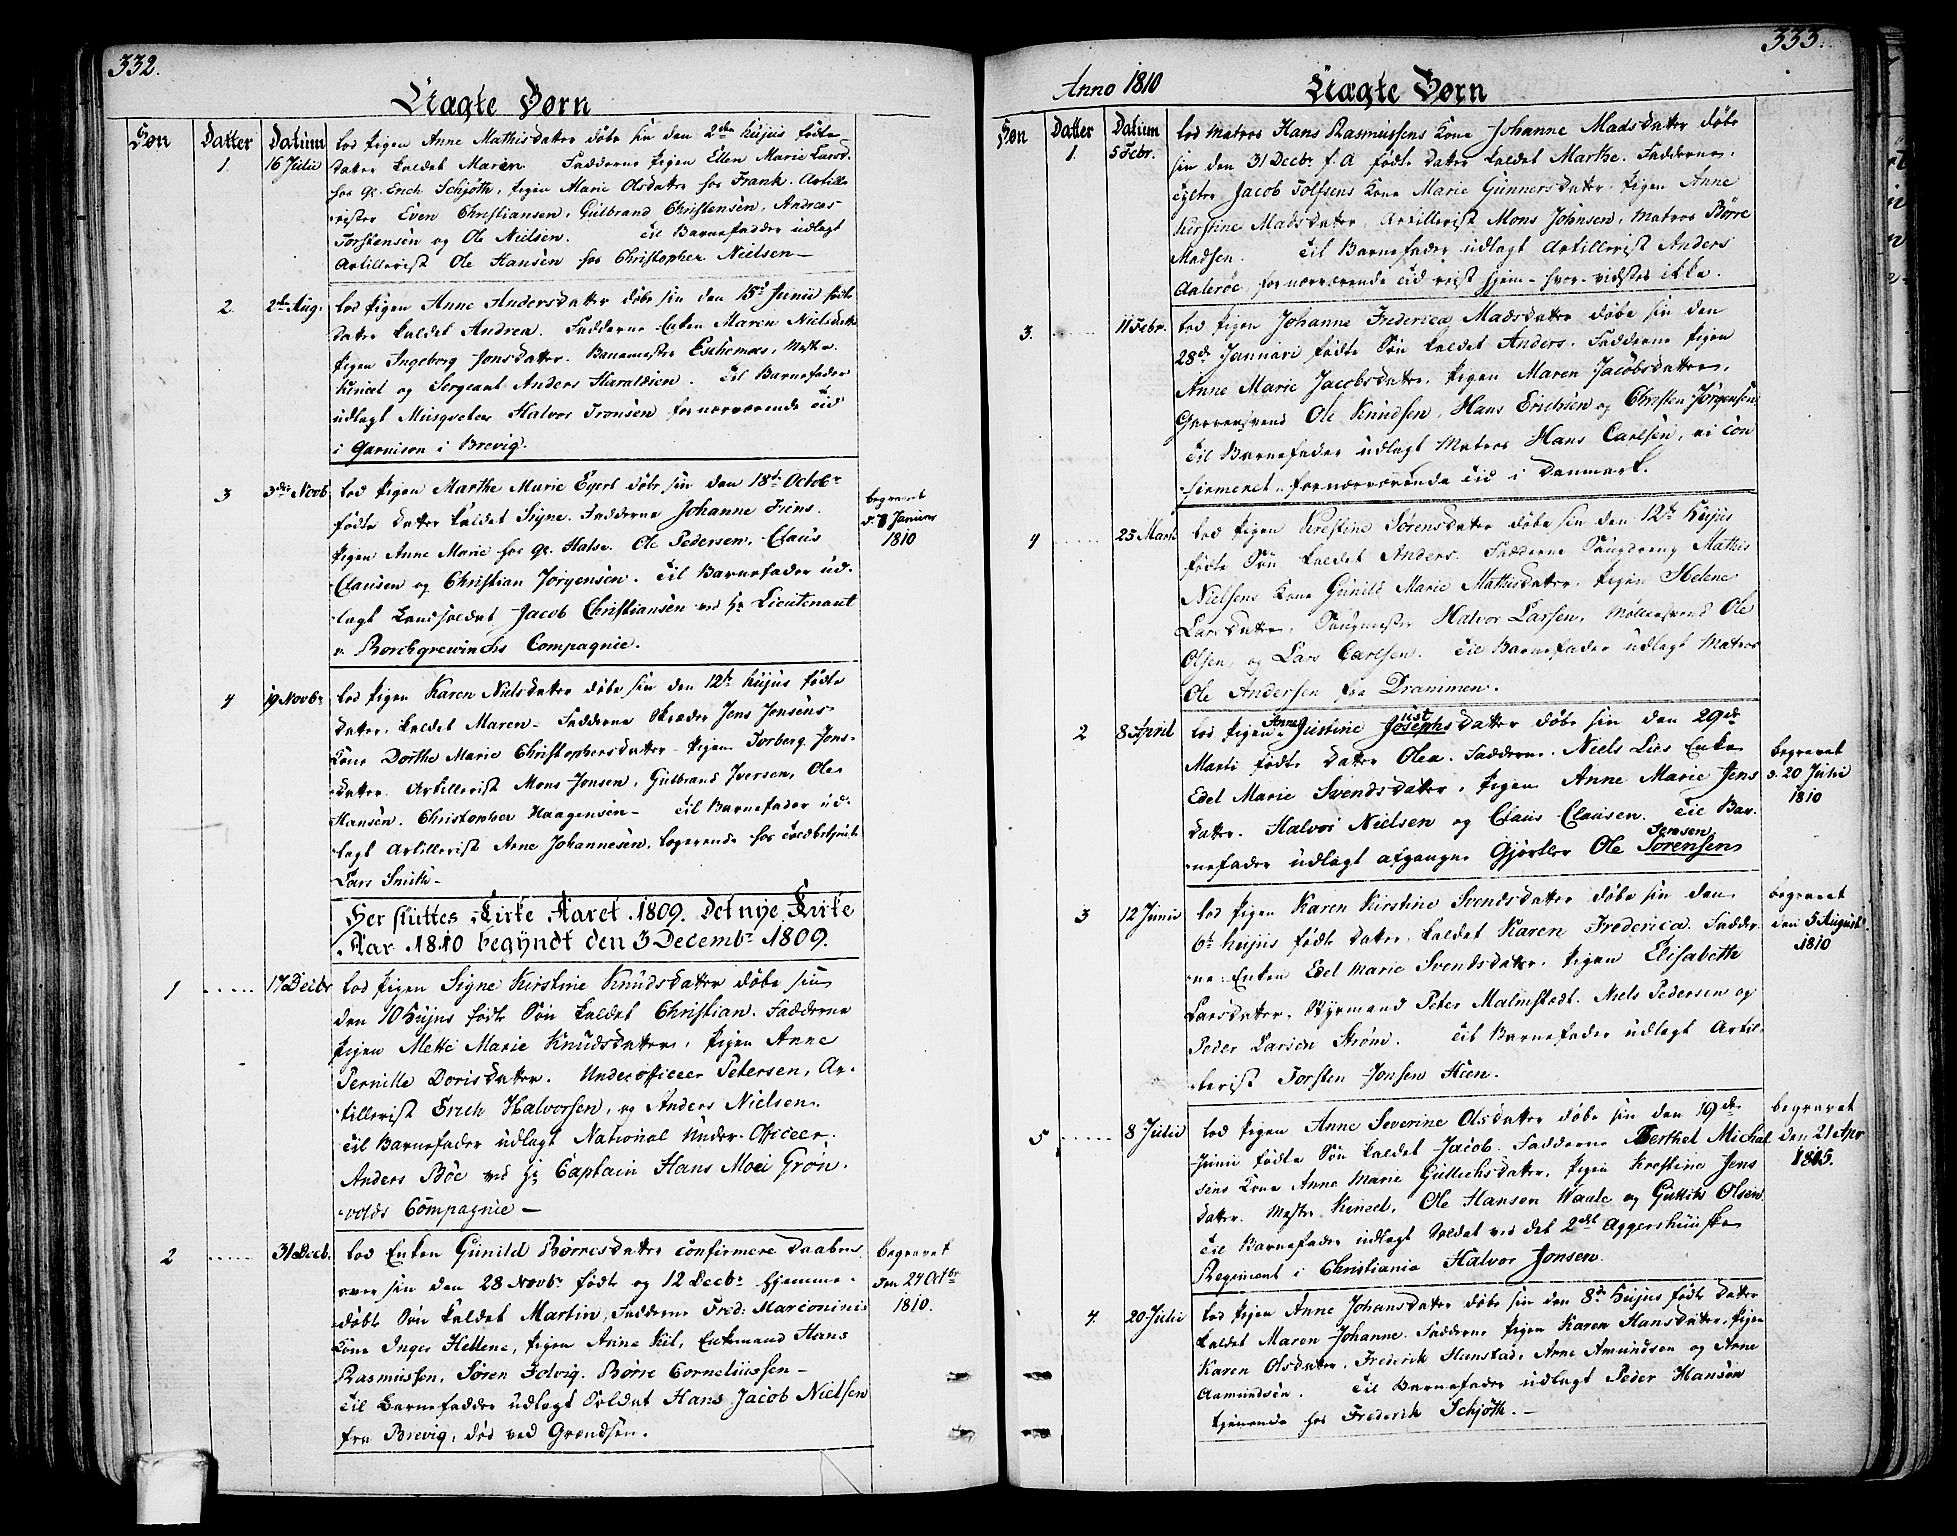 332.
Uægte Børn
Søn Datter Datum
1. 16 Julii
lod Pigen Anne Mathisdatter døbe sin den 2den hujus fødte
Datter kaldet Maren. Fadderne Pigen Ellen Marie Larsd.
hos Hr. Erich Schjøth, Pigen Marie Olsdatter hos Frank. Artille
rister Even Christiansen, Gulbrand Christensen, Andreas
Torstensen og Ole Nielsen. Til Barnefader udlagt
Artillerist Ole Hansen hos Christopher Nielsen –
2. 2de Aug:
lod Pigen Anne Andersdatter døbe sin den 15de Junii fødte
Datter kaldet Andrea. Fadderne Enken Maren Nielsdatter
Pigen Ingeborg Jonsdatter. Baadsmester Eschemoes, Mester
Kincel og Sergeant Anders Haraldsen. Til Barnefader
udlagt Musqueteer Halvor Tronsen for nærværende Tid
i Garnison i Brevig.
3 3die Novb.
lod Pigen Marthe Marie Egert døbe sin den 18de Octobr
fødte Datter kaldet Signe. Fadderne Johanne Friis.
Pigen Anne Marie hos Hr. Halse. Ole Pedersen, Claus
Clausen og Christian Jørgensen. Til Barnefader ud-
lagt Landsoldat Jacob Christiansen ved Hr Lieutenant
v. Borchgrewinchs Compagnie.
begravet
d. 7 Januar
1810
4 19 Novbr
lod Pigen Karen Nielsdatter døbe sin den 12te hujus fødte
Datter, kaldet Maren – Fadderne Skræder Jens Jensens
Kone Dorthe Marie Christophersdatter – Pigen Torberg Jons-
datter. Artillerist Mons Jonsen, Gulbrand Iversen, Ole
Hansen. Christopher Haagensen – Til Barnefader ud-
lagt Artillerist Arne Johannesen, logerende hos Toldbetjent
Lars Smith –
Her sluttes Kirke Aaret 1809. Det nye Kirke
Aar 1810 begyndt den 3 Decembr 1809.
1 17 Decbr
lod Pigen Signe Kirstine Knudsdatter døbe sin
den 10 hujus fødte Søn kaldet Christian. Fadderne
Pigen Mette Marie Knudsdatter, Pigen Anne
Pernille Dorisdatter. Underofficeer Petersen, Ar-
tillerist Erich Halvorsen, og Anders Nielsen.
Til Barnefader udlagt National Under-Officeer
Anders Bøe ved Hr Captain Hans Moei Grøn-
volds Compagnie –
2 31 Decb.
lod Enken Gunild Børresdatter confirmere Daaben
over sin den 28 Novbr fødte og 12 Decbr hjemme-
døbte Søn kaldet Martin, Fadderne Fred: Marconinis
Kone Inger Hellene, Pigen Anne Kiil, Enkemand Hans
Rasmussen, Søren Solvig. Børre Corneliussen –
Til Barnefader udlagt Soldat Hans Jacob Nielsen
fra Brevig, død ved Grændsen.
begravet
den 27 Octbr
1810.
333.
Anno 1810 Uægte Børn
Søn Datter Datum
1. 5 Febr.
lod Matros Hans Rasmussens Kone Johanne Madsdatter døbe
sin den 31 Decbr f.A fødte Datter kaldet Marthe. Fadderne
Jacob Tolfsens Kone Marie Gunnersdatter, Pigen Anne
Kirstine Madsdatter, Artillerist Mons Johnsen, Matros Børre
Madsen. Til Barnefader udlagt Artillerist Anders
Aalerøe for nærværende Tid reist hjem – hvor vidstes ikke.
3. 11 Febr.
lod Pigen Johanne Frederica Madsdatter døbe sin den
28de Januari fødte Søn kaldet Anders. Fadderne Pigen
Anne Marie Jacobsdatter, Pigen Maren Jacobsdatter,
Garversvend Ole Knudsen, Hans Erichsen og Christen Jørgensen
Til Barnefader udlagt Matros Hans Carlsen, ei con
firmeret. for nærværende Tid i Danmark.
4 25 Marti
lod Pigen Kirestine Sørensdatter døbe sin den 12te hujus
fødte Søn kaldet Anders. Fadderne Saugdreng Mathis
Nielsens Kone Gunild Marie Mathisdatter, Pigen Helene
Larsdatter, Saugmester Halvor Larsen, Møllersvend Ole
Olsen, og Lars Carlsen. Til Barnefader udlagt Matros
Ole Andersen fra Drammen.
2 8 April
lod Pigen Anne Justine Josephsdatter døbe sin den 29de
Marti fødte Datter Olea. Fadderne Niels Lies Enke
Edel Marie Svendsdatter, Pigen Anne Marie Jens
datter. Halvor Nielsen og Claus Clausen. Til Bar-
nefader udlagt afgangne Gjørtler Ole Sørensen
Jensen
begravet
d. 20 Julii
1810
3 12 Junii
lod Pigen Karen Kirstine Svendsdatter døbe sin den
6te hujus fødte Datter, kaldet Karen Frederica. Fadder-
ne Enken Edel Marie Svendsdatter, Pigen Elisabeth
Larsdatter, Styrmand Peter Malmstedt. Niels Pedersen og
Peder Larsen Strøm. Til Barnefader udlagt Artil-
lerist Torsten Jonsen Hien.
begravet
den 5 August
1810
5 8 Julii
lod Pigen Anne Severine Olsdatter døbe sin den 19de
Junii fødte Søn kaldet Jacob. Fadderne Berthel Michel
sens Kone Anne Marie Gullichsdatter, Pigen Kirstine Jens
datter. Mester Kincel, Ole Hansen Waale og Gullik Olsen
Til Barnefader udlagt Soldat ved det 2det Aggershuuske
Regiment i Christiania Halvor Jonsen.
begravet
den 21 Apr
1815.
4. 20 Julii
lod Pigen Anne Johansdatter døbe sin den 8de hujus fødte Datter
kaldet Maren Johanne. Fadderne Pigen Karen Hansdatter, Pigen
Karen Olsdatter, Frederik Hunstad, Arne Amundsen og Arne
Aamundsen. Til Barnefader udlagt Peder Hansen
tjenende hos Frederik Schjøth. –